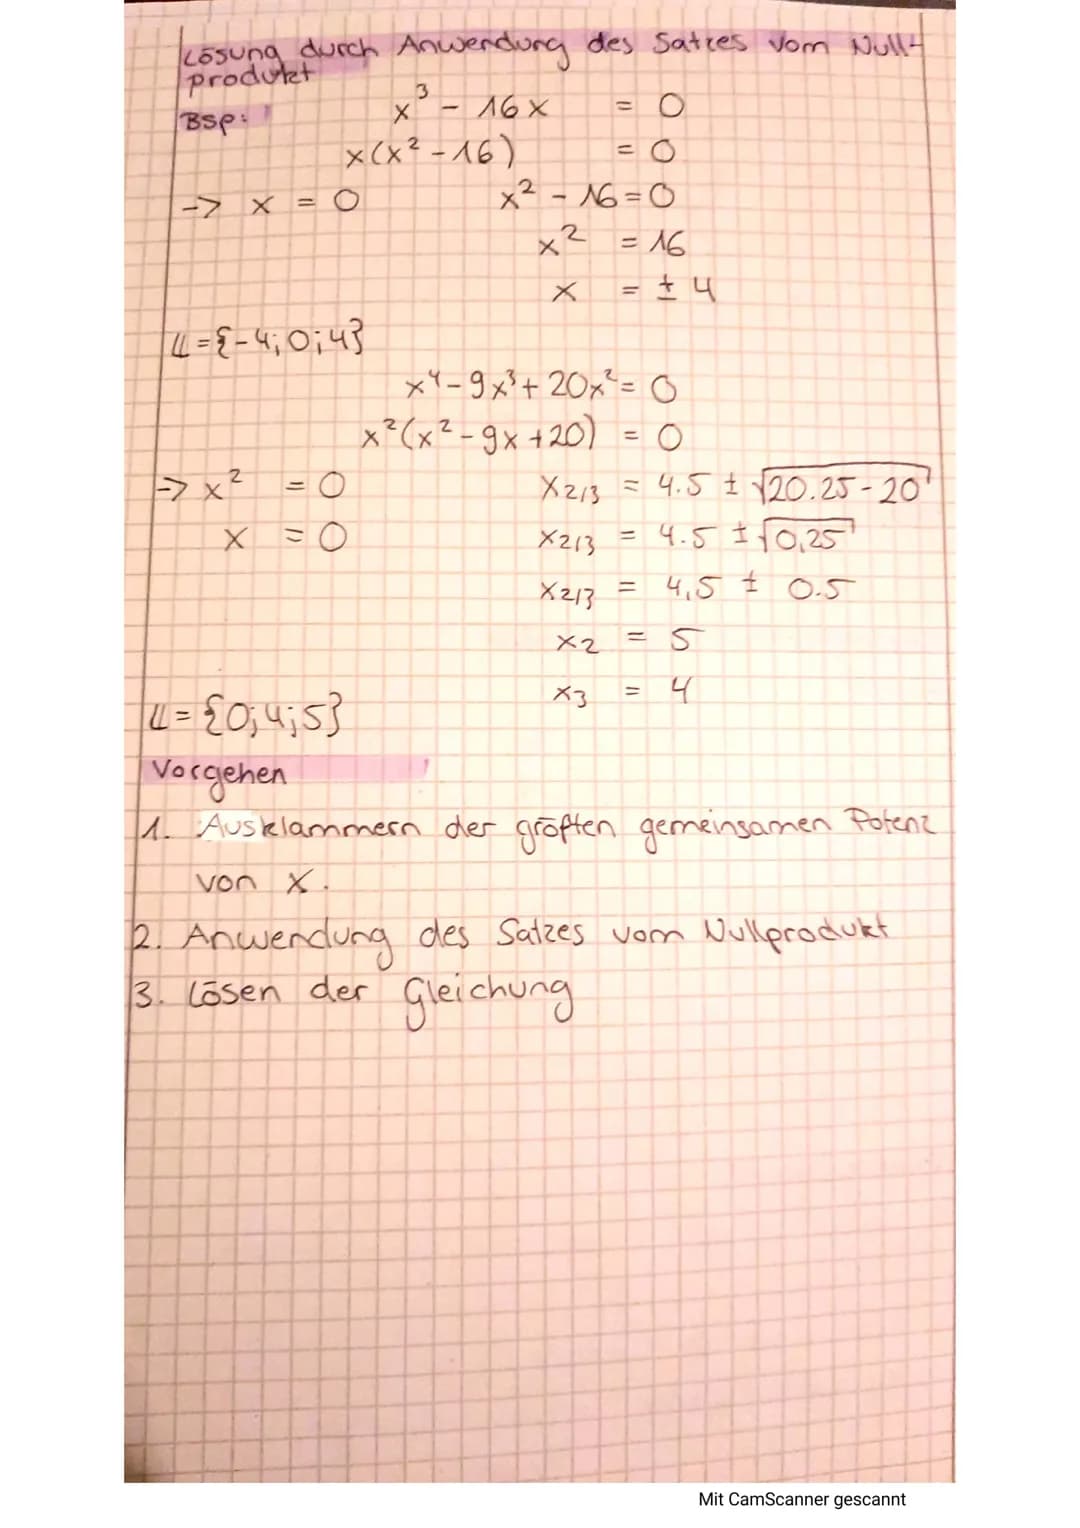 Lösung durch Anwendung des Satzes vom Null-
produkt
Bsp:
x³ - 16x = 0
x(x² - 16) = 0
-> x = 0 x² - 16 = 0
x² = 16
x = ± 4
𝕃 = {-4; 0; 4}
x⁴ - 9x³ + 20x² = 0
x²(x² - 9x + 20) = 0
-> x² = 0 x2/3 = 4.5 ± √20.25 - 20
x = 0 x2/3 = 4.5 ± √0,25
x2/3 = 4,5 ± 0.5
x2 = 5
x3 = 4
𝕃 = {0; 4; 5}
Vorgehen
1. Ausklammern der größten gemeinsamen Potenz
von x.
2. Anwendung des Satzes vom Nullprodukt
3. Lösen der Gleichung
Mit CamScanner gescannt